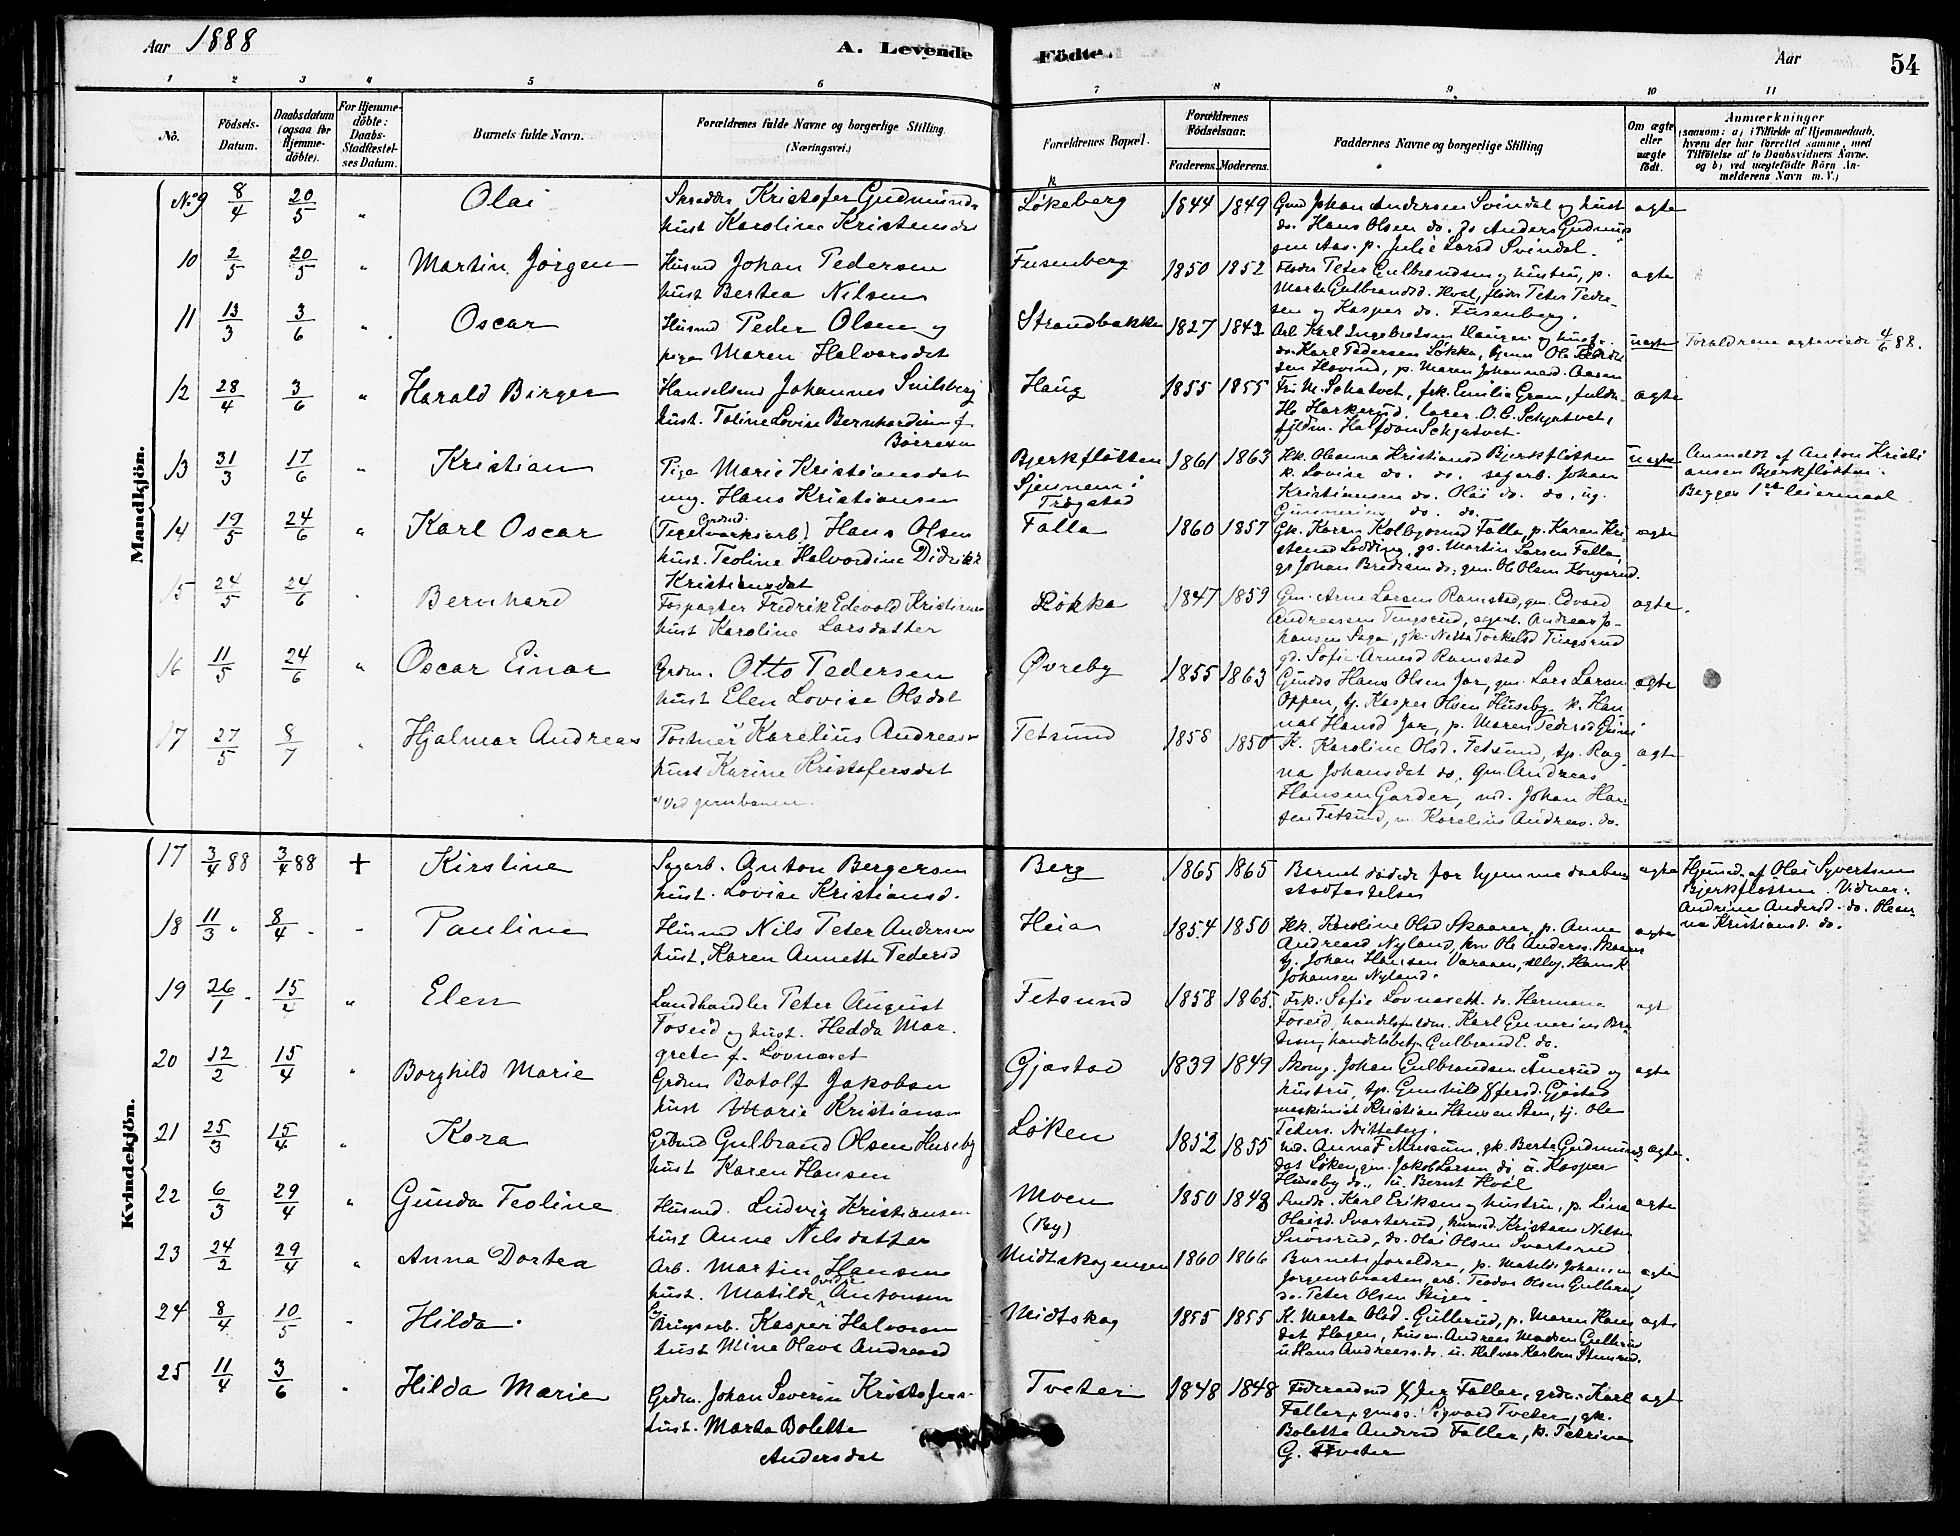 Aar 1888 A. Levende Födte. Aar 54
1 2 3 4 5 6 7 8 9 10 11
No. Födsels-Datum. Daabsdatum (ogsaa for Hjemme-döbte). For Hjemme-döbte: Daabs-Stadfæstel-ses Datum. Barnets fulde Navn. Forældrenes fulde Navne og borgerlige Stilling. (Næringsvei.) Forældrenes Bopæl. Forældrenes Födselsaar. Faderens. Moderens. Faddernes Navne og borgerlige Stilling Om ægte eller uægte födt. Anmærkninger (saasom: a) i Tilfælde af Hjemmedaab, hvem der har forrettet samme, med Tilföielse af to Daabsvidners Navne, og b) ved uægtefödte Börn An-melderens Navn m. V.)
Mandkjön.
No 9 8/4 20/5 " Olai Kristofer Gudmunds
hust Karoline Kristensdat
Løkeberg 1844 1849 Gmd Johan Andersen Svindal og hust ægte
do. Hans Olsen do.
Aas. p. Julie Larsd Svindal.
10 2/5 20/5 " Martin Jørgen Husmd Johan Pedersen
hust Bertea Nilsen
Fusenberg 1850 1852 Peter Gulbrandsen og hustru, p. ægte
Marte Gulbrandsd. Hval, Peter Peder-
sen og Kasper do. Fusenberg.
11 13/3 3/6 " Oscar Husmd Peder Olsen og
pige Maren Halvorsdat
Strandbakke 1827 1842 Arb. Karl Ingebretsen Haugen og hust. uægte Forældrene ægteviede 4/6 88.
do. Karl Pedersen Løkka,
Hovind, p. Maren Johannesd. Aasen
12 28/4 3/6 " Harald Birger Handelsmd Johannes Snilsberg
hust. Toline Lovise Bernhardine f.
Børresen
Haug 1855 1855 Fr. M. Schatvet, frk. Emilie Gran, ægte
O. C. Schjatvet,
Halfdan Schjatvet.
13 31/3 17/6 " Kristian Pige Marie Kristiansdat
ung. Hans Kristiansen
Bjerkfløtten
Sjennem i
Trøgstad
1861 1863 Hk. Oleanna Kristiansd Bjerkfløtten uægte Anmeldt af Anton Kristi-
k. Lovise do. do. sagarb. Johan ansen Bjerkfløtten.
Kristiansen do. Olai do. do. ug. Begges 1ste leiermaal
do. do.
14 19/5 24/6 " Karl Oscar Grdmd.
(Teglværksarb.) Hans Olsen
hust. Teoline Halvordine Didriks
Kristiansdat
Falla 1860 1857 Gk. Karen Kolbjørnsd Falla, p. Karen Kri- ægte
stensd Lødding, gs. Martin Larsen Falla,
gs Johan Bredesen do; gm. Ole Olsen Kongsrud.
15 24/5 24/6 " Bernhard Forpagter Fredrik Edevald Kristiansen
hust Karoline Larsdatter
Løkka 1847 1859 Gm. Arne Larsen Ramstad, gm. Edvard ægte.
Andreassen Tingsrud, sagarb. Andreas Jo-
hansen Saga, gk. Netta Torkelsd Tingsrud
gd. Sofie Arnesd Ramstad
16 11/5 24/6 " Oscar Einar Grdm. Otto Pedersen
hust Elen Lovise Olsdat
Øvreby 1855 1863 Hans Olsen Jar, gm. Lars Larsen ægte
Oppen, tj. Kasper Olsen Huseby. k. Han-
na Hansd Jar, p. Maren Pedersd
17 27/5 8/7 " Hjalmar Andreas Portner Karelius Andreasen
hust Karine Kristofersdat
Ved jernbanen.
Fetsund 1858 1850 K. Karoline Olsd. Fetsund, tp. Rag- ægte
na Johansdat do. Gm. Andreas
Hansen Garder, md. Johan Han-
sen Fetsund, Karelius Andreas. do.
Kvindekjön.
17 3/4 88 3/4 88 + Kirstine Sagarb. Anton Bergersen
hust. Lovise Kristiansd.
Berg 1865 1865 Barnet døde før hjemmedaabens ægte Hjemd. af Olai Syvertsen
stadfæstelse Bjerkfløtten. Vidner:
Andrine Andersd. do. Olean-
na Kristiansd. do.
18 11/3 " 8/4 " " Pauline Husmd Nils Peter Andersen
hust. Karen Annette Pedersd
Heia 1854 1850 Hk. Karoline Olsd Skaarer, p. Anne ægte
Andreasd Nyland, Ole Anders. Skaarer
tj. Johan Hansen Varaaen, Hans K.
Johansen Nyland.
19 26/1 " 15/2 " Elen Landhandler Peter August
Foseid og hust. Hedda Mar-
grete f. Løvnæset
Fetsund 1858 1865. Frk: Sofie Løvnæsett. do. Hermana ægt
Foseid, handelsfuldm. Karl Gunerius
handelsbetj. Gulbrand E. do.
20 12/2 15/4 " Borghild Marie Grdm Botolf Jakobsen
hust Marie Kristiansen
Gjøstad 1839 1849 Skomg. Johan Gulbrandsen Ånerud og ægte
hustru, tp. Gunhild Gjøstad
maskinist Kristian Hansen Sten, tj. Ole
Peters. Nitteberg.
21 25/3 15/4 " Kora Grdmd Gulbrand Olsen Huseby
hust Karen Hansen
Løken 1852 1855 md. Anna F Museum, gk. Berte Gudmunds- ægte.
dat Løken, gm. Jakob Larsen do u. Kasper
Huseby do., u. Bernt Hvål
22 6/3 29/4 " Gunda Teoline Husmd. Ludvig Kristiansen
hust Anne Nilsdatter
Moen
(By)
1850 1848 Karl Eriksen og hustru, p. Lina ægte
Olaisd. Svarterud, husmd. Kristian Nilsen
do. Olai Olsen Svarterud
23 24/2 29/4 " Anna Dortea Arb. Martin Hansen
hust. Matilde Ovidie Antonsen
Midtskogengen 1860 1866 Barnets foreldre, p. Matilde Johansen ægte
Jørgensbraaten, arb. Teodor Olsen
do. Peter Olsen Stigen.
24 8/4 10/5 " Hilda. Brugsarb. Kasper Halvorsen
hust Mine Olave Andreasd
Midtskog 1855 1855 K. Marta Olsd. Gullerud, p. Maren Hans- ægte
dat Hagen, husm. Andreas Madsen Gullerud
u. Hans Andreass. do. u. Halvor Karlsen Stensrud.
25 11/4 3/6 " Hilda Marie Grdm. Johan Severin Kristofers-
hust. Marta Bolette
Andersdat
Tveter 1848 1848 Føderaadmd Faller, grdm: Karl ægt
Faller, Sigvard Tveter, gk.
Bolette Andersd Faller, p. Petrine
G. Tveter